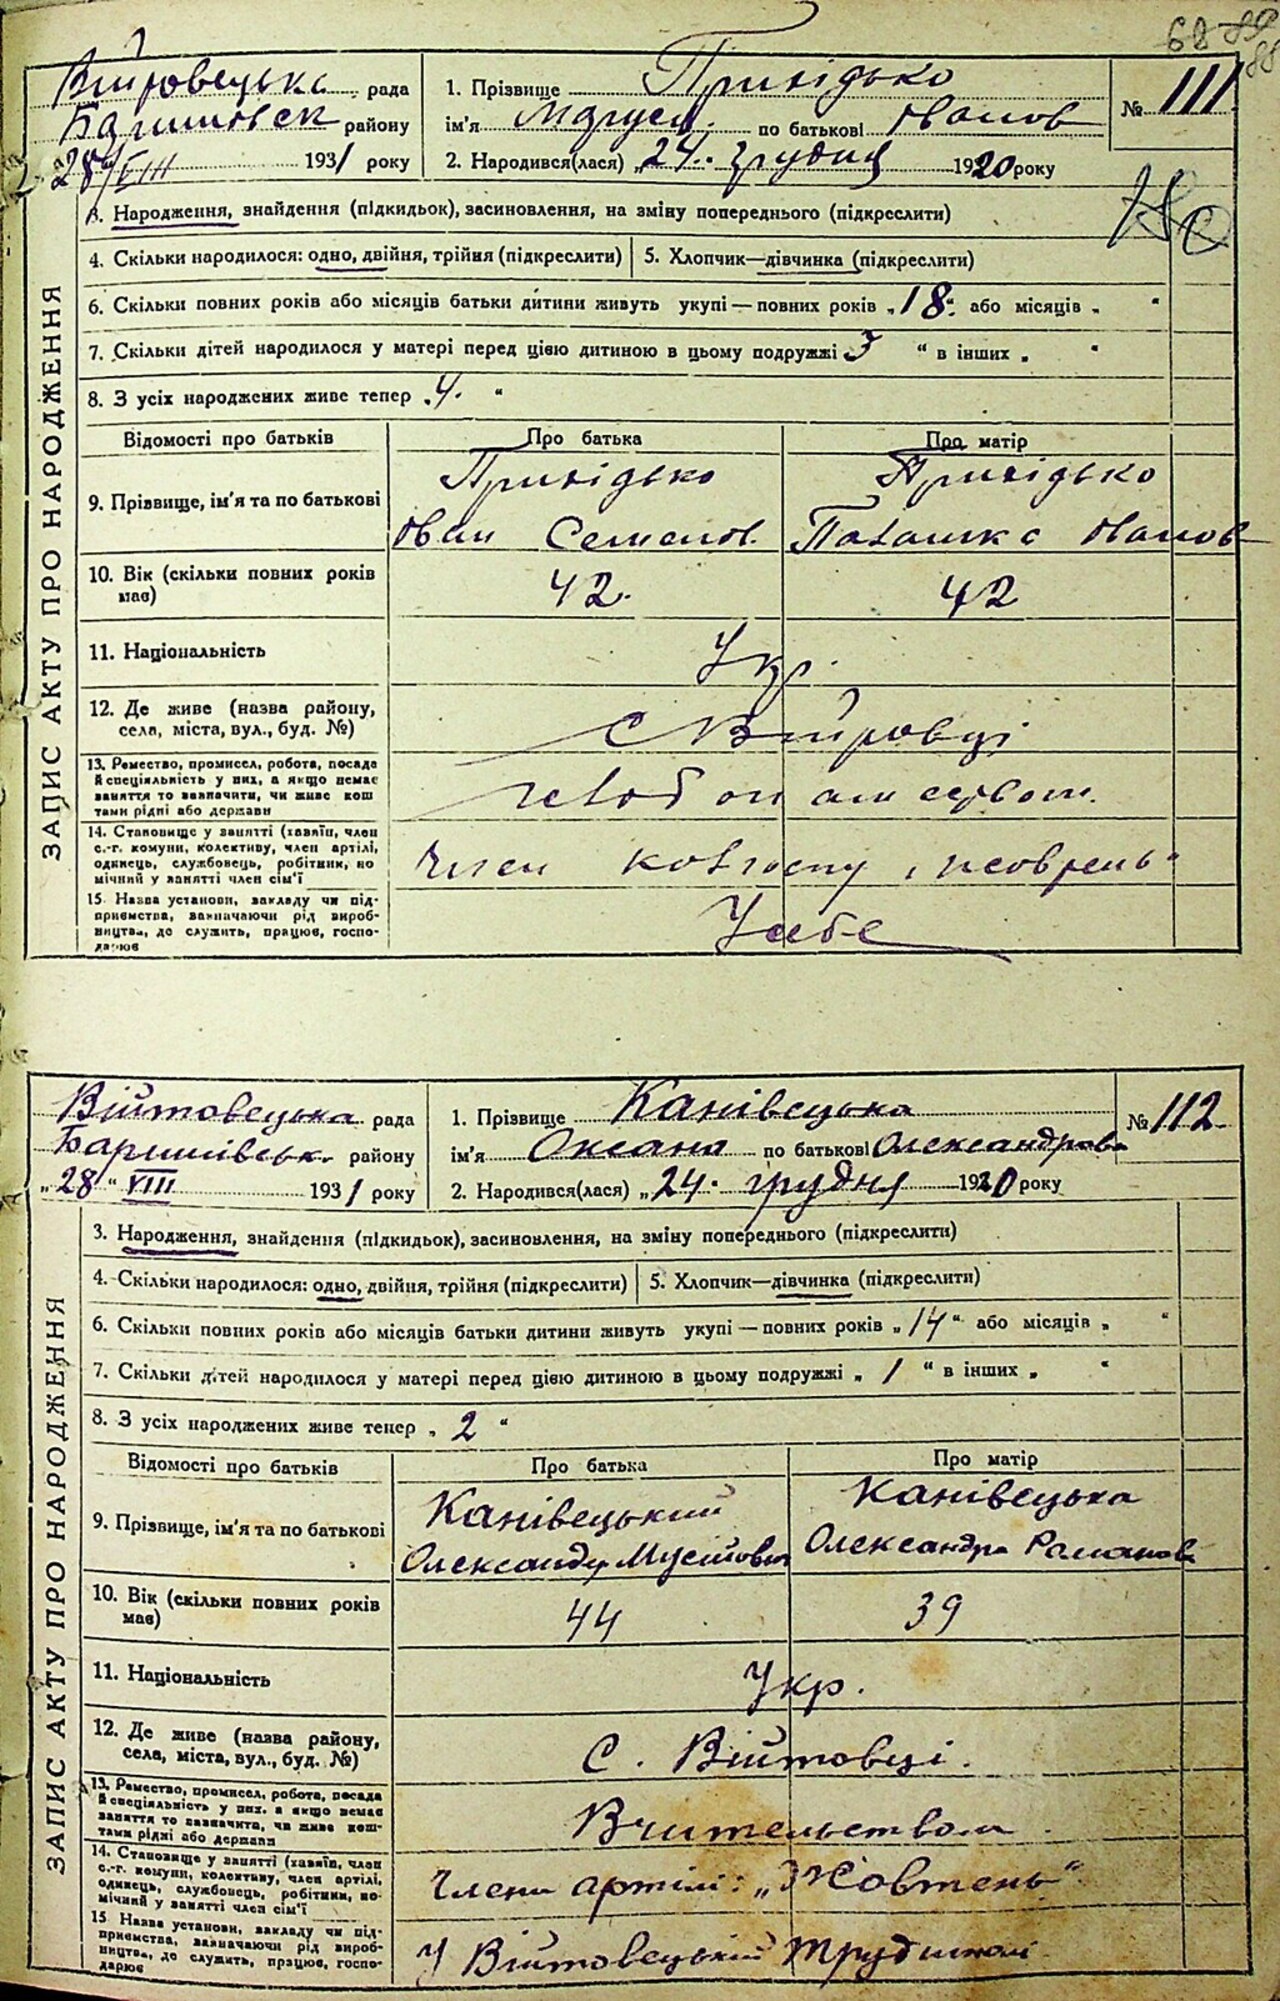 62 89
88
Війтовецька рада
Баришівськ району
28/VIII 1931 року
1. Прізвище
ім'я Маруся по батькові Іванов
2. Народився(лася) „24. грудня 1920 року
№ 111
ЗАПИС АКТУ ПРО НАРОДЖЕННЯ
3. Народження, знайдення (підкидьок), засиновлення, на зміну попереднього (підкреслити)
4. Скільки народилося: одно, двійня, трійня (підкреслити)
5. Хлопчик—дівчинка (підкреслити)
6. Скільки повних років або місяців батьки дитини живуть укупі — повних років „18“ або місяців „ “
7. Скільки дітей народилося у матері перед цією дитиною в цьому подружжі 3 “ в інших „ “
8. З усіх народжених живе тепер „4. “
Відомості про батьків
Про батька
Про матір
9. Прізвище, ім'я та по батькові
Іван Семенов.
Палажка Іванов
10. Вік (скільки повних років має)
42.
42
11. Національність
Укр.
12. Де живе (назва району, села, міста, вул., буд. №)
С Війтовці
13. Ремество, промисел, робота, посада й спеціяльність у них, а якщо немає заняття то зазначити, чи живе коштами рідні або держави
14. Становище у занятті (хазяїн, член с.-г. комуни, колективу, член артілі, одинець, службовець, робітник, помічний у занятті член сім'ї
Член колгоспу „Жовтень“
15 Назва установи, закладу чи підприємства, зазначаючи рід виробництва, де служить, працює, господарює
У себе
Війтовецька рада
Баришівськ. району
„28“ VIII 1931 року
1. Прізвище Канівецька
ім'я Оксана по батькові Олександрова
2. Народився(лася) „24. грудня 1920 року
№ 112
ЗАПИС АКТУ ПРО НАРОДЖЕННЯ
3. Народження, знайдення (підкидьок), засиновлення, на зміну попереднього (підкреслити)
4. Скільки народилося: одно, двійня, трійня (підкреслити)
5. Хлопчик—дівчинка (підкреслити)
6. Скільки повних років або місяців батьки дитини живуть укупі — повних років „14“ або місяців „ “
7. Скільки дітей народилося у матері перед цією дитиною в цьому подружжі „ 1 “ в інших „ “
8. З усіх народжених живе тепер „ 2 “
Відомості про батьків
Про батька
Про матір
9. Прізвище, ім'я та по батькові
Канівецький
Олександр
Канівецька
Олександра Романова
10. Вік (скільки повних років має)
44
39
11. Національність
Укр.
12. Де живе (назва району, села, міста, вул., буд. №)
С. Війтовці.
13. Ремество, промисел, робота, посада й спеціяльність у них, а якщо немає заняття то зазначити, чи живе коштами рідні або держави
Вчительством
14. Становище у занятті (хазяїн, член с.-г. комуни, колективу, член артілі, одинець, службовець, робітник, помічний у занятті член сім'ї
Члени артілі: „Жовтень“
15 Назва установи, закладу чи підприємства, зазначаючи рід виробництва, де служить, працює, господарює
У Війтовецькій трудшколі